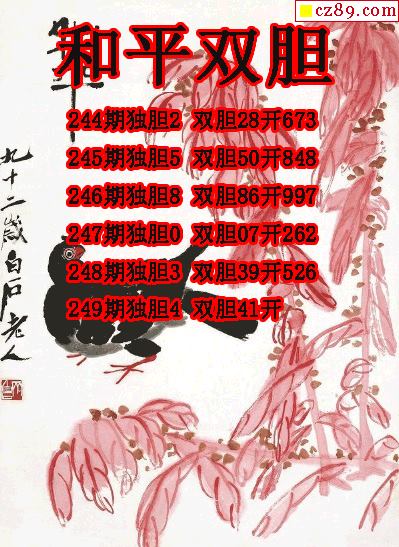 cz89.com
和平双胆
244期独胆2 双胆28开673
245期独胆5 双胆50开848
246期独胆8 双胆86开997
247期独胆0 双胆07开262
248期独胆3 双胆39开526
249期独胆4 双胆41开
九十二岁白石老人